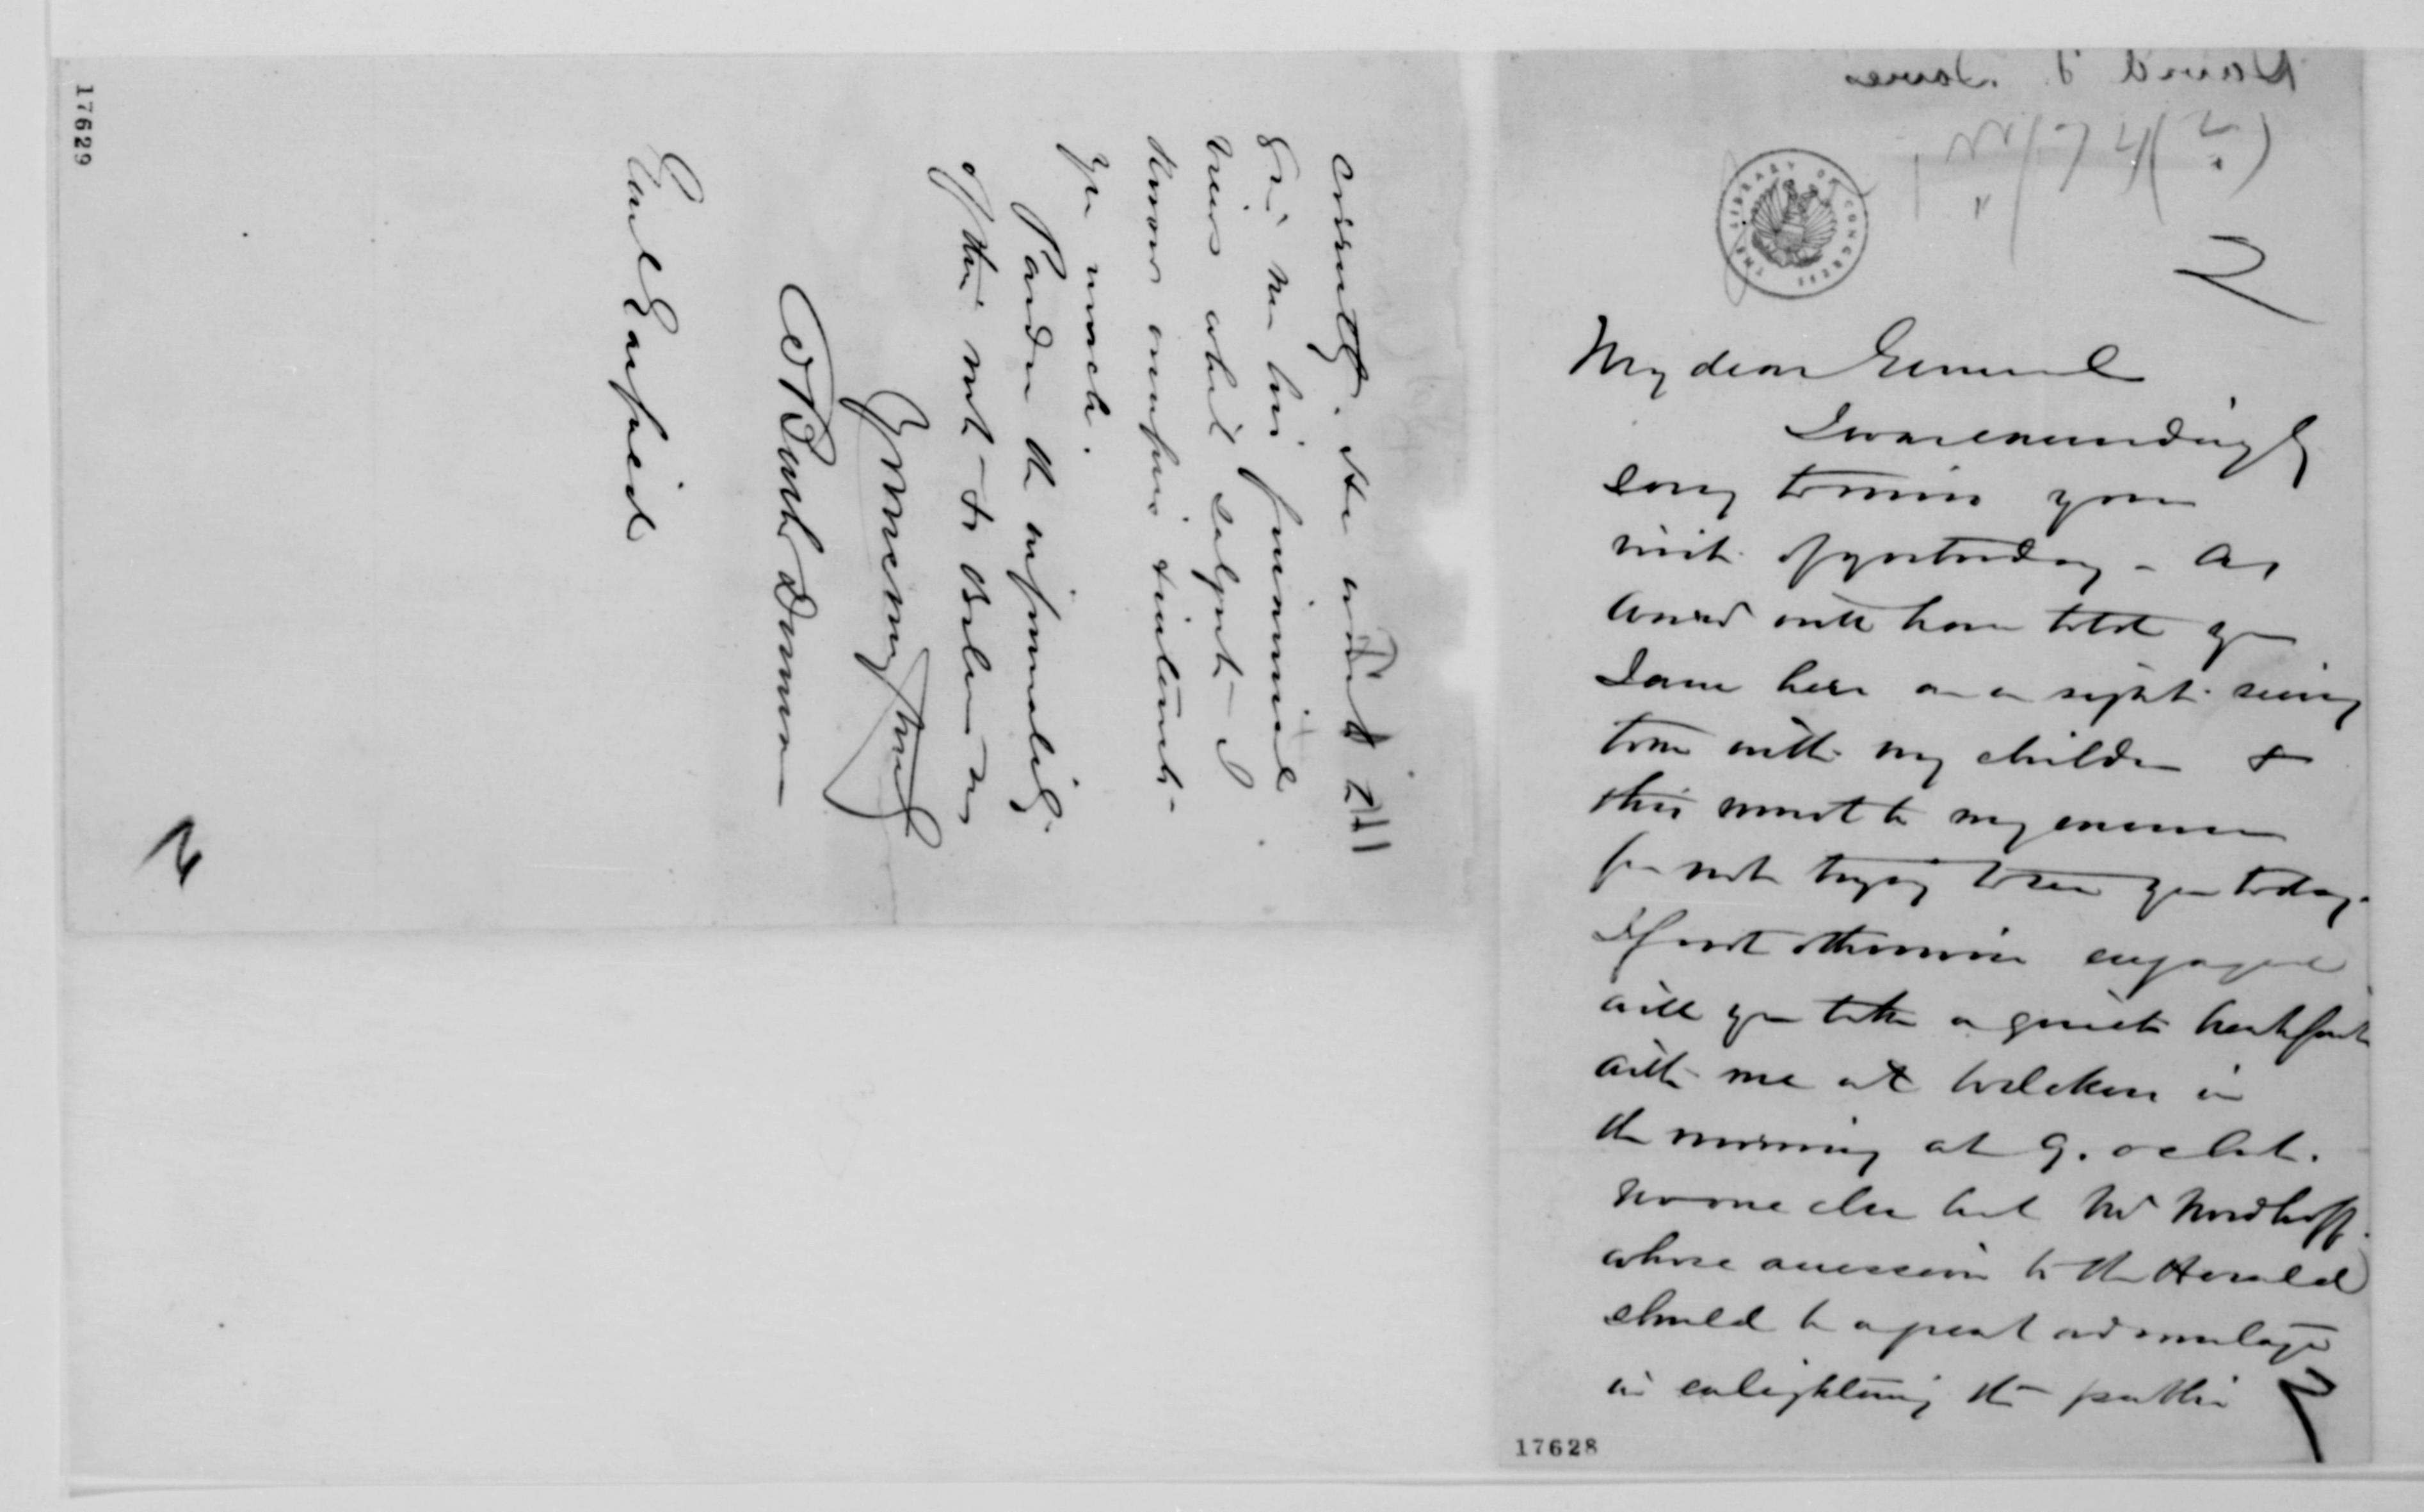 1874(?)
2
THE LIBRARY OF CONGRESS
My dear General
I was exceedingly
sorry to miss your
visit of yesterday - As
Ward will have told you
I am here on a sight-seeing
tour with my children &
this must be my excuse
for not trying to see you today.
If not otherwise engaged
will you take a quiet breakfast
with me at Welckers in
the morning at 9. oclock.
No one else but Mr Nordhoff.
whose accession to the Herald
should be a great advantage
in enlightening the public
17628
correctly. He would
give me his financial
views about subjects - I
know confirms
you much.
Pardon the informality
of this note - & believe me
Yours very truly
Genl Garfield
17629